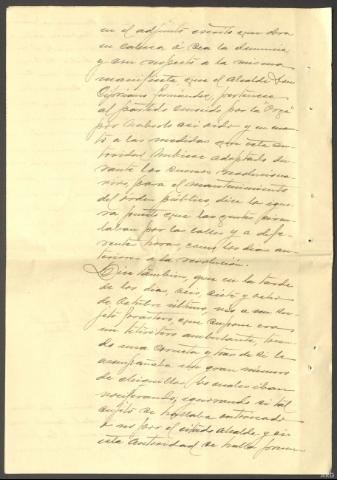 en el adjunto escrito que obra
en cabeza ó sea la denuncia,
y con respecto á la misma
manifiesta que el Alcalde Don
Cipriano Fernández, pertenece
al partido conocido por la Orga
por haberlo asi oido y en cuan
to á las medidas que esta au
toridad hubiese adoptado du
rante los sucesos revoluciona
rios, para el mantenimiento
del orden público, dice lo igno
ra puesto que las gentes circu
laban por la calle y á dife
rentes horas, como los dias an
teriores á la revolución.
Dice tambien, que en la tarde
de los dias, seis, siete y ocho
de Octubre último, vió á un su
jeto que supone era
un titiritero ambulante,
do una corneta y tras de si le
acompañaba un gran número
de chiquillos los cuales iban
vociferando, ignorando si tal
sujeto se hallaba autorizado
ó no por el citado Alcalde y si
esta autoridad se halla